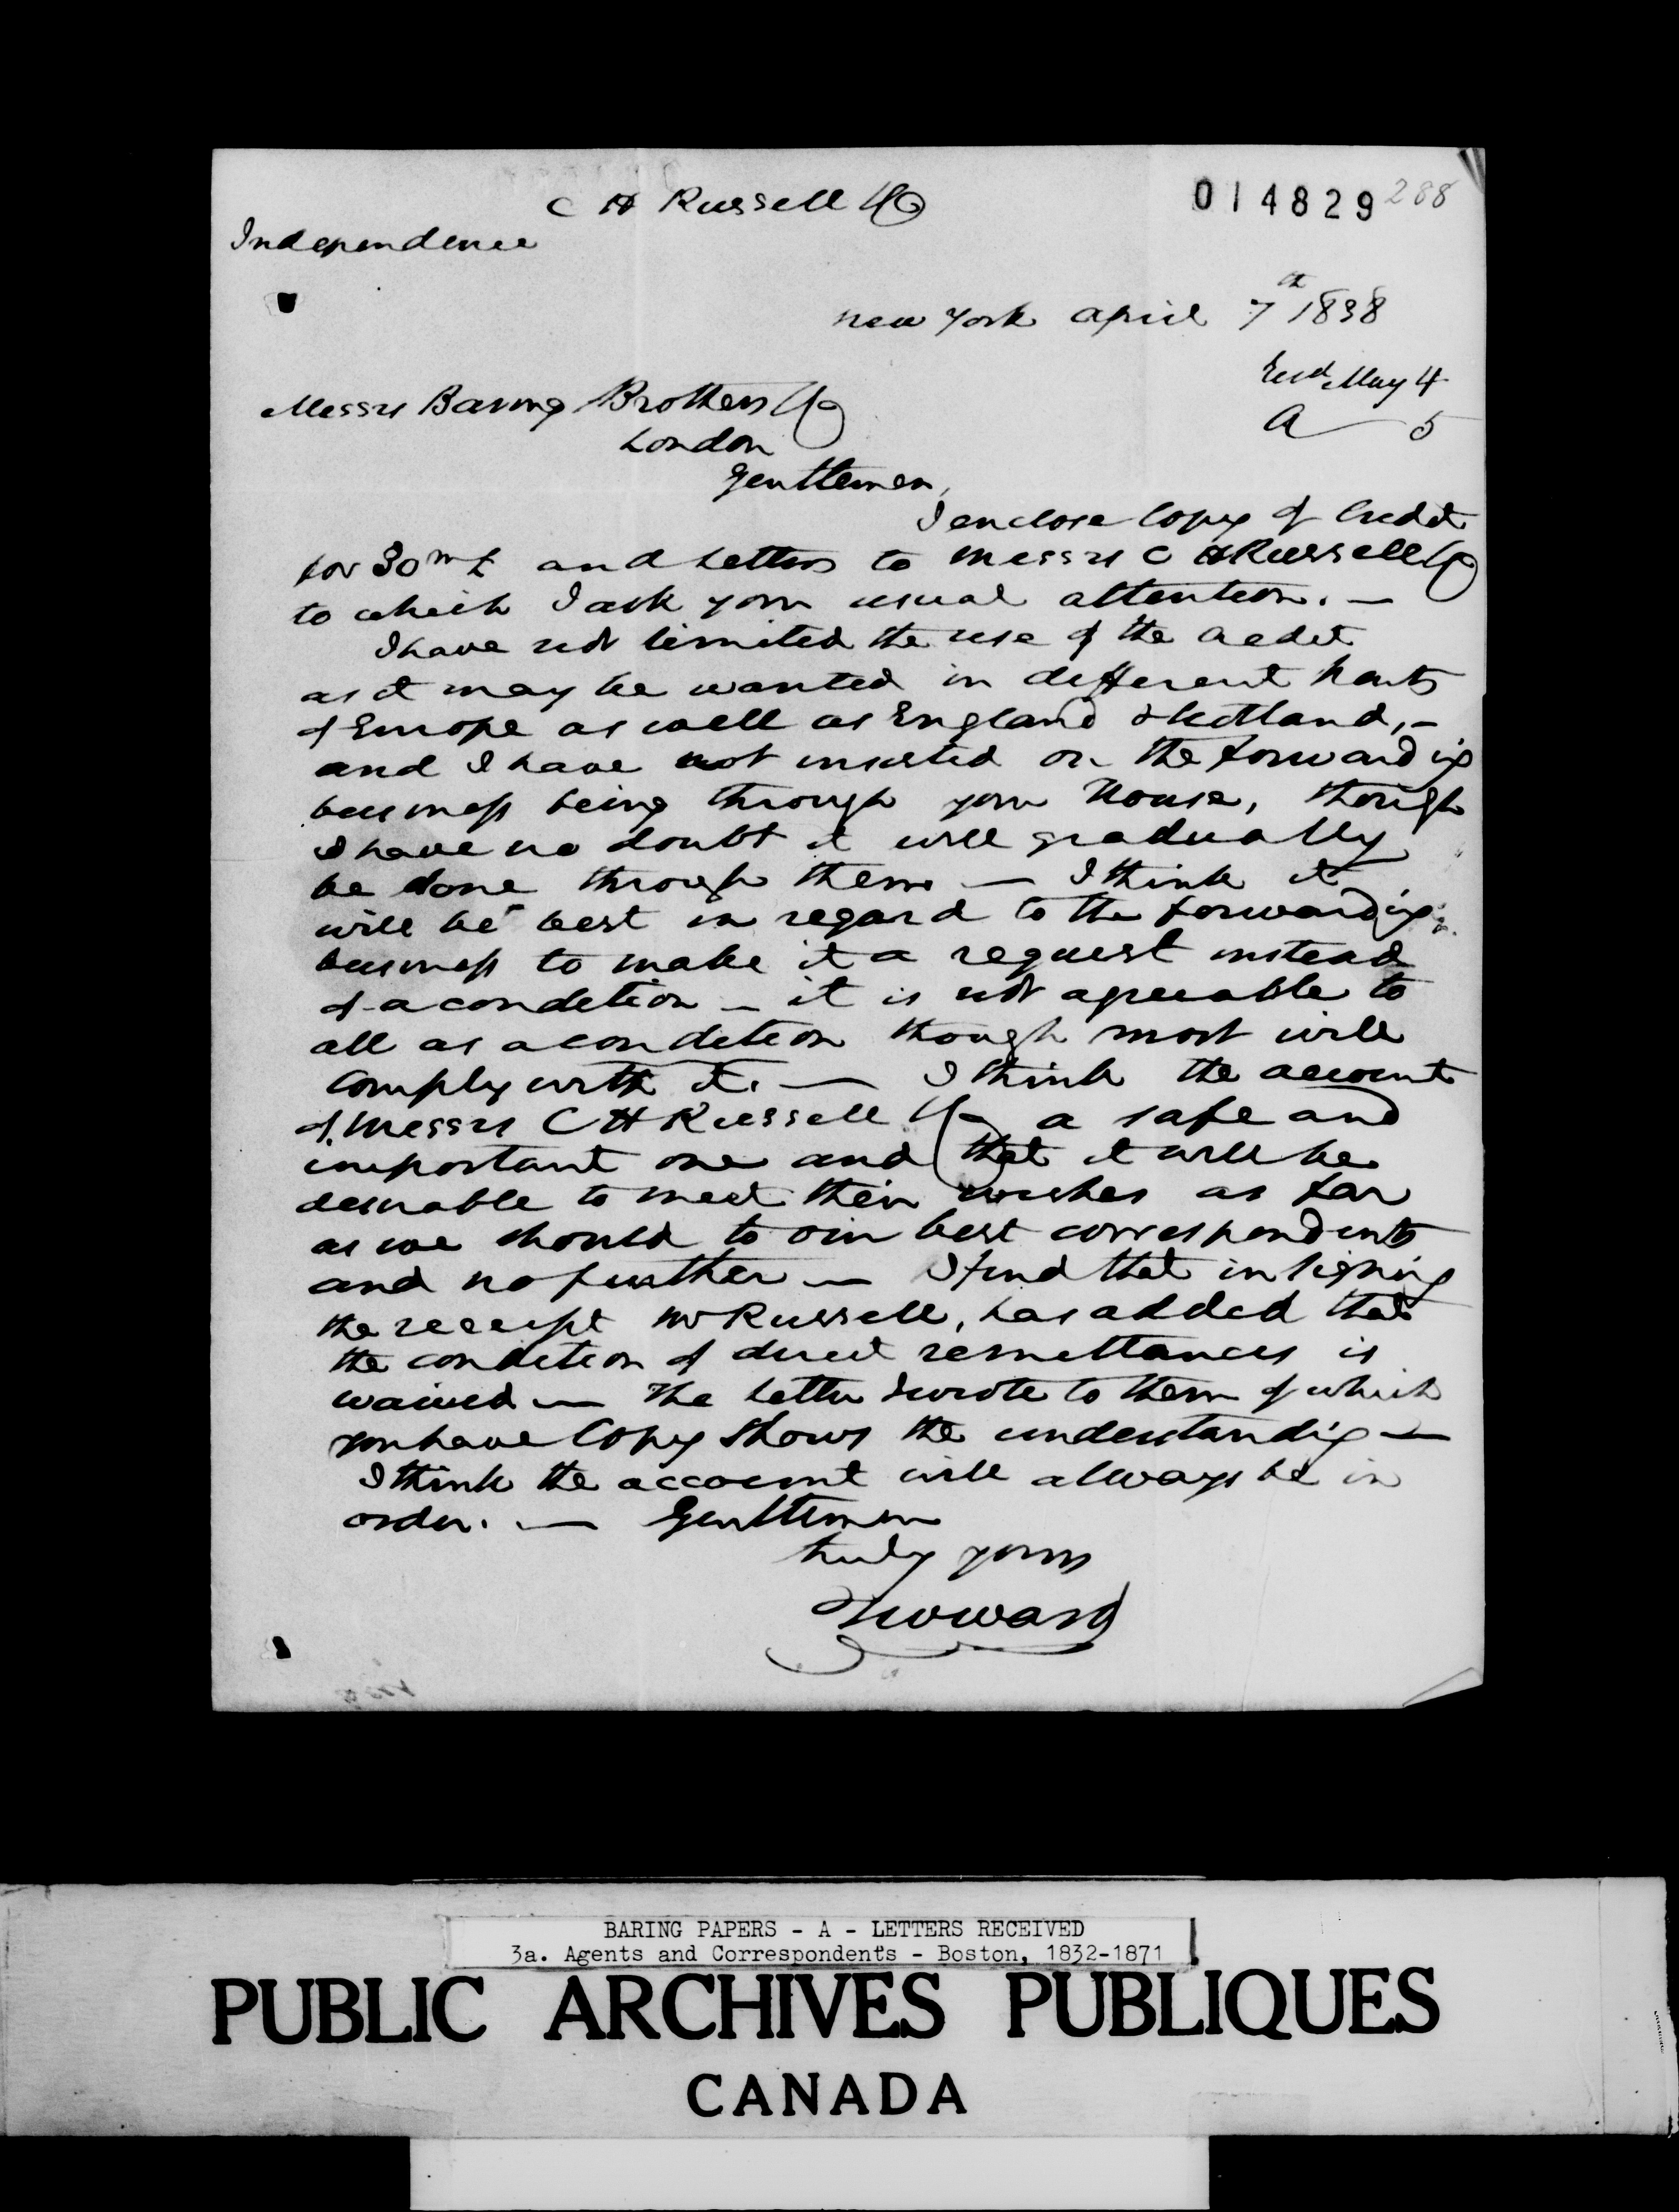 C H Russell & Co
014829 288
Independence
New York April 7th 1838
Recd May 4
A 5
Messrs Baring Brothers & Co
London
Gentlemen,
I enclose Copy of Credit
for 30 m £ and Letters to Messrs C H Russell & Co
to which I ask your usual attention. —
I have not limited the use of the Credit
as it may be wanted in different parts
of Europe as well as England & Scotland, —
and I have not insisted on the forwarding
business being through your House, though
I have no doubt it will gradually
be done through them — I think it
will be best in regard to the forwarding
business to make it a request instead
of a condition — it is not agreeable to
all as a condition though most will
comply with it. — I think the account
of Messrs C H Russell & Co a safe and
important one and that it will be
desirable to meet their wishes as far
as we should to our best correspondents
and no further — I find that in signing
the receipt Mr Russell, has added that
the condition of direct remittances is
waived — The letter I wrote to them of which
you have Copy shows the understanding —
I think the account will always be in
order. — Gentlemen
truly yours
BARING PAPERS - A - LETTERS RECEIVED
3a. Agents and Correspondents - Boston, 1832-1871
PUBLIC ARCHIVES PUBLIQUES
CANADA